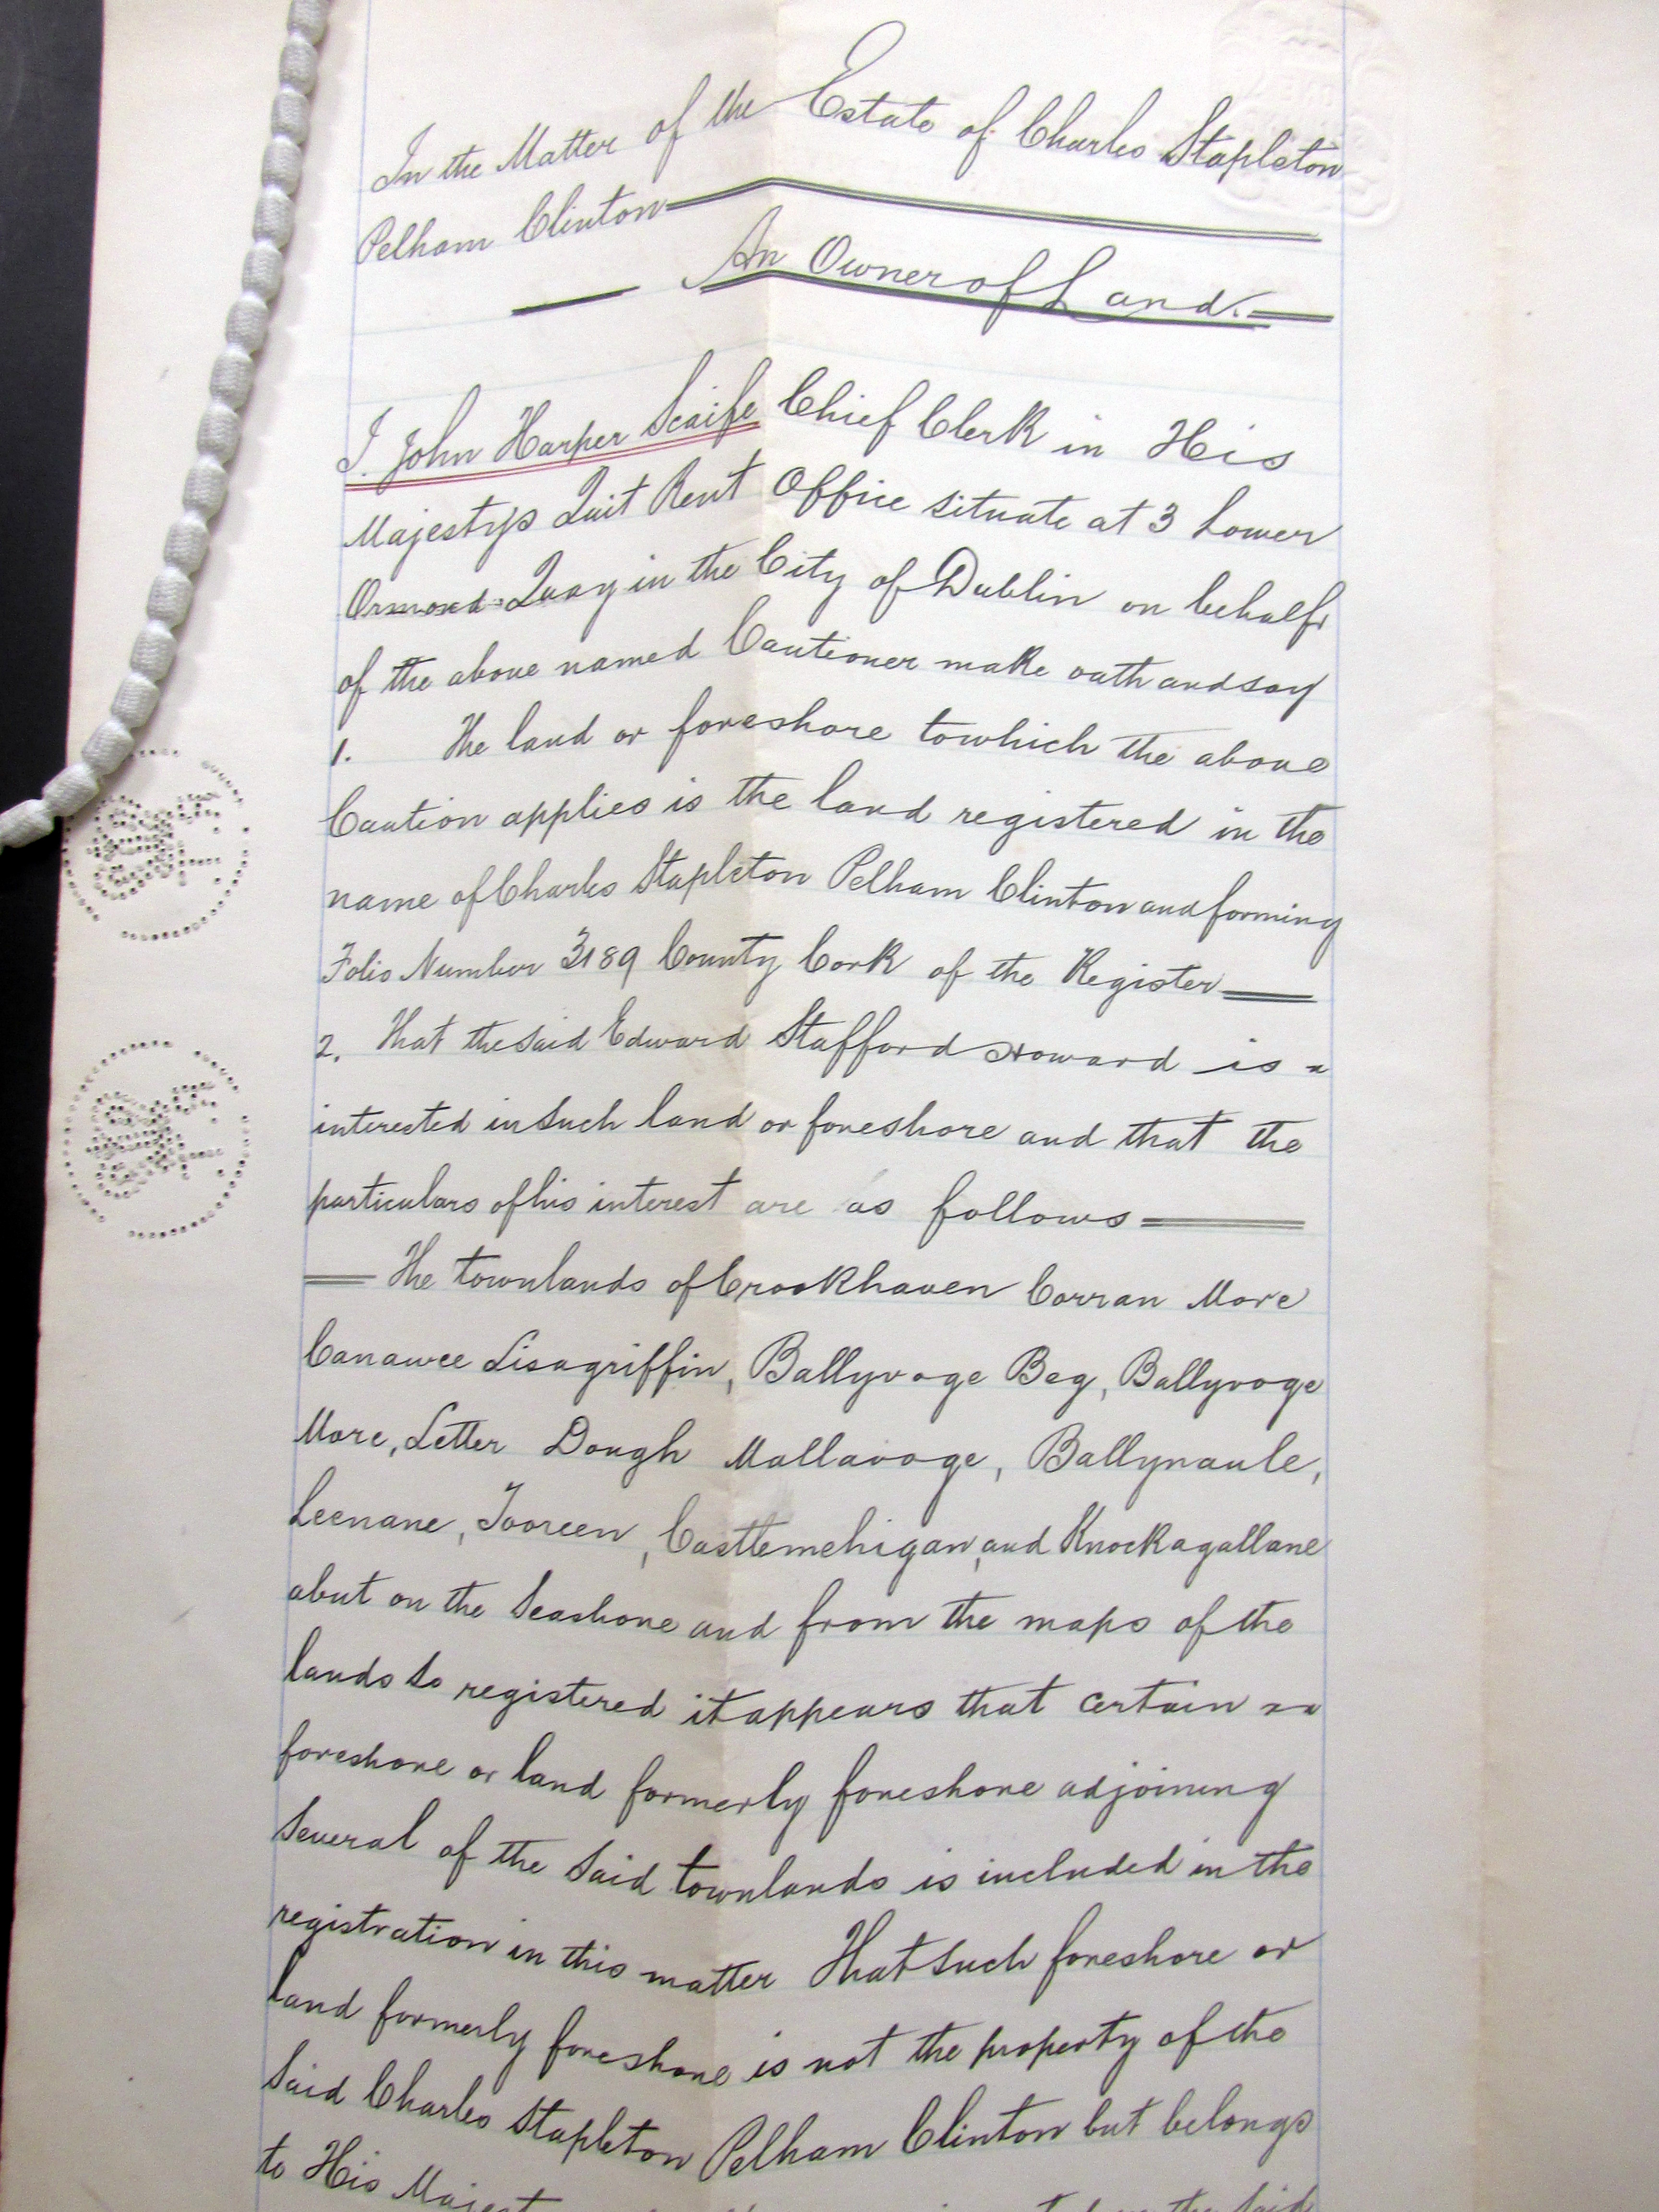 In the Matter of the Estate of Charles Stapleton
Pelham Clinton
An Owner of Land.
I. John Harper Scaife Chief Clerk in His
Majestys Quit Rent Office situate at 3 Lower
Ormond Quay in the City of Dublin on behalf
of the above named Cautioner make oath and say
1. The land or foreshore to which the above
Caution applies is the land registered in the
name of Charles Stapleton Pelham Clinton and forming
Folio Number 3189 County Cork of the Register
2. That the said Edward Stafford Howard is
interested in such land or foreshore and that the
particulars of his interest are as follows
The townlands of Crookhaven Corran More
Canawee Lisagriffin, Ballyvoge Beg, Ballyvoge
More, Letter Dough Mallavoge, Ballynaule,
Leenane, Tooreen, Castlemehigan, and Knockagallane
abut on the Seashore and from the maps of the
lands so registered it appears that certain
foreshore or land formerly foreshore adjoining
several of the said townlands is included in the
registration in this matter That such foreshore or
land formerly foreshore is not the property of the
said Charles Stapleton Pelham Clinton but belongs
to His the said